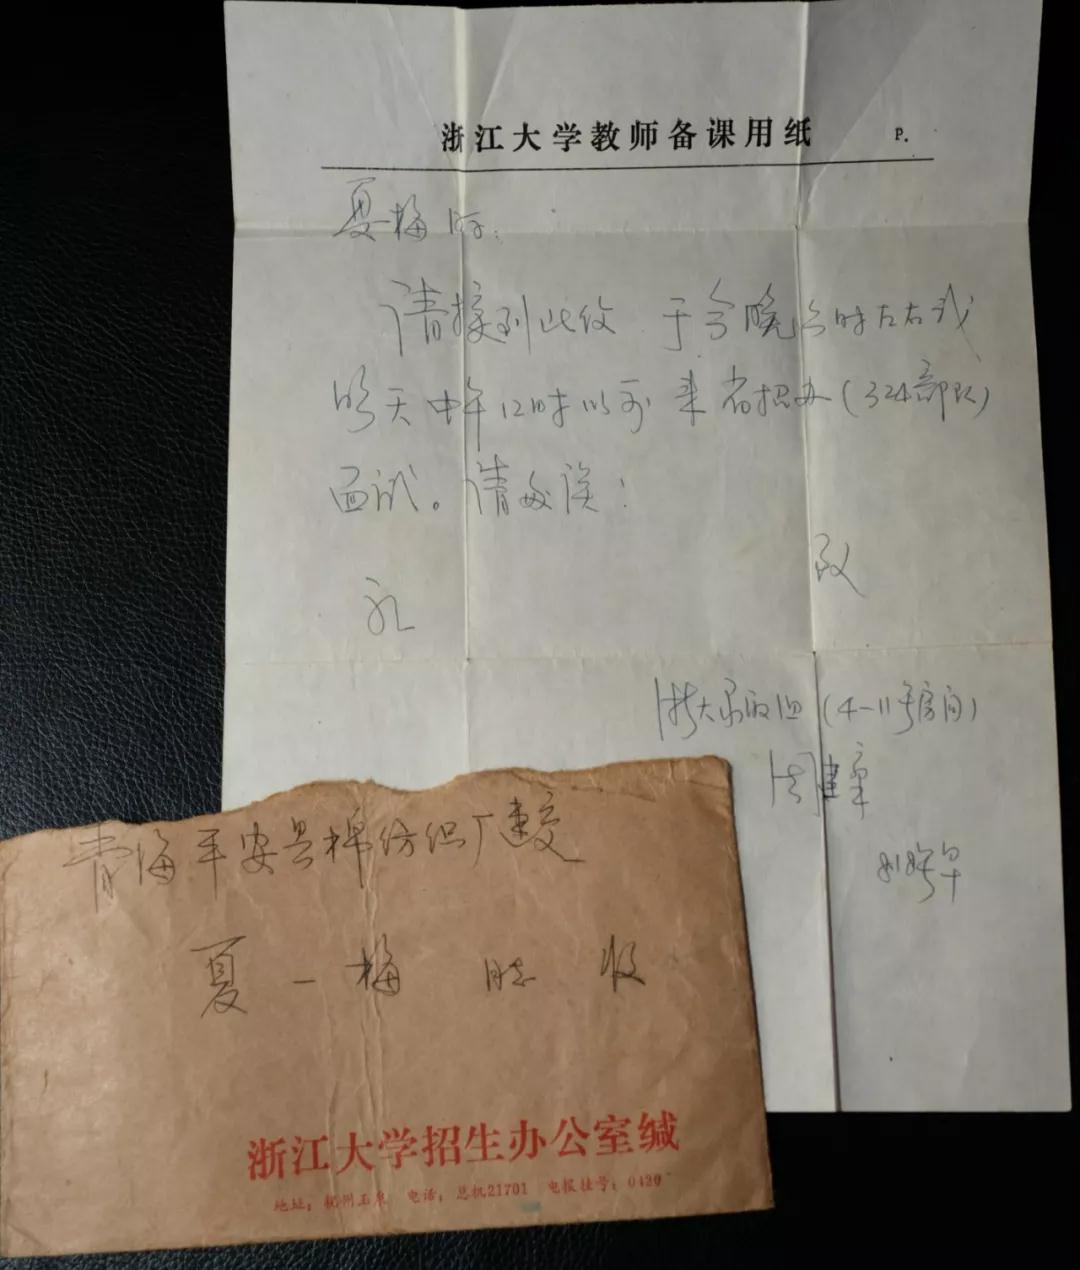 浙江大学教师备课用纸 P.
夏一梅同志:
请接到此信 于今晚 时左右或
明天中午12时以前 来省招办(324部队)
面试。请勿误!
致
礼
浙大录取组(4-11号房间)
周建章
青海平安县棉纺织厂速交
夏一梅 同志 收
浙江大学招生办公室缄
地址:杭州玉泉 电话:总机21701 电报挂号:0420